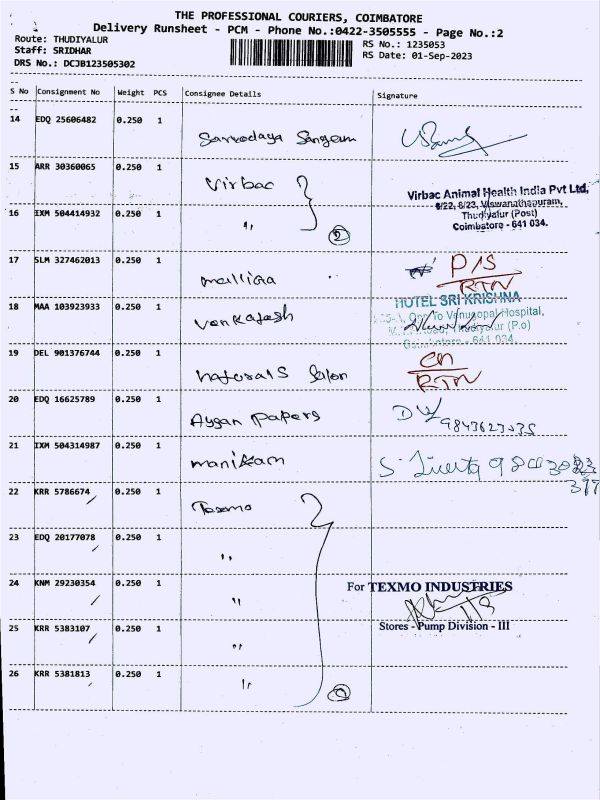 THE PROFESSIONAL COURIERS, COIMBATORE
Delivery Runsheet - PCM - Phone No.:0422-3505555 - Page No.:2
Route: THUDIYALUR
Staff: SRIDHAR
DRS No.: DCJB123505302
RS No.: 1235053
RS Date: 01-Sep-2023
S No Consignment No Weight PCS Consignee Details Signature
14 EDQ 25606482 0.250 1 Sarvodaya Sangam
15 ARR 30360065 0.250 1 Virbac
Virbac Animal Health India Pvt Ltd,
8/22, 8/23, Viswanathapuram,
Thudiyalur (Post)
Coimbatore - 641 034.
16 IXM 504414932 0.250 1 "
2
17 SLM 327462013 0.250 1 mallika P/S
RTN
18 MAA 103923933 0.250 1 Venkatesh
HOTEL SRI KRISHNA
Opp To Venugopal Hospital,
Thudiyalur (P.o)
Coimbatore - 641 034.
19 DEL 901376744 0.250 1 naturals Salon CN
RTN
20 EDQ 16625789 0.250 1 Ayyan Papers
21 IXM 504314987 0.250 1 manikam
22 KRR 5786674 0.250 1 Texmo
23 EDQ 20177078 0.250 1 "
24 KNM 29230354 0.250 1 "
For TEXMO INDUSTRIES
Stores - Pump Division - III
25 KRR 5383107 0.250 1 "
26 KRR 5381813 0.250 1 "